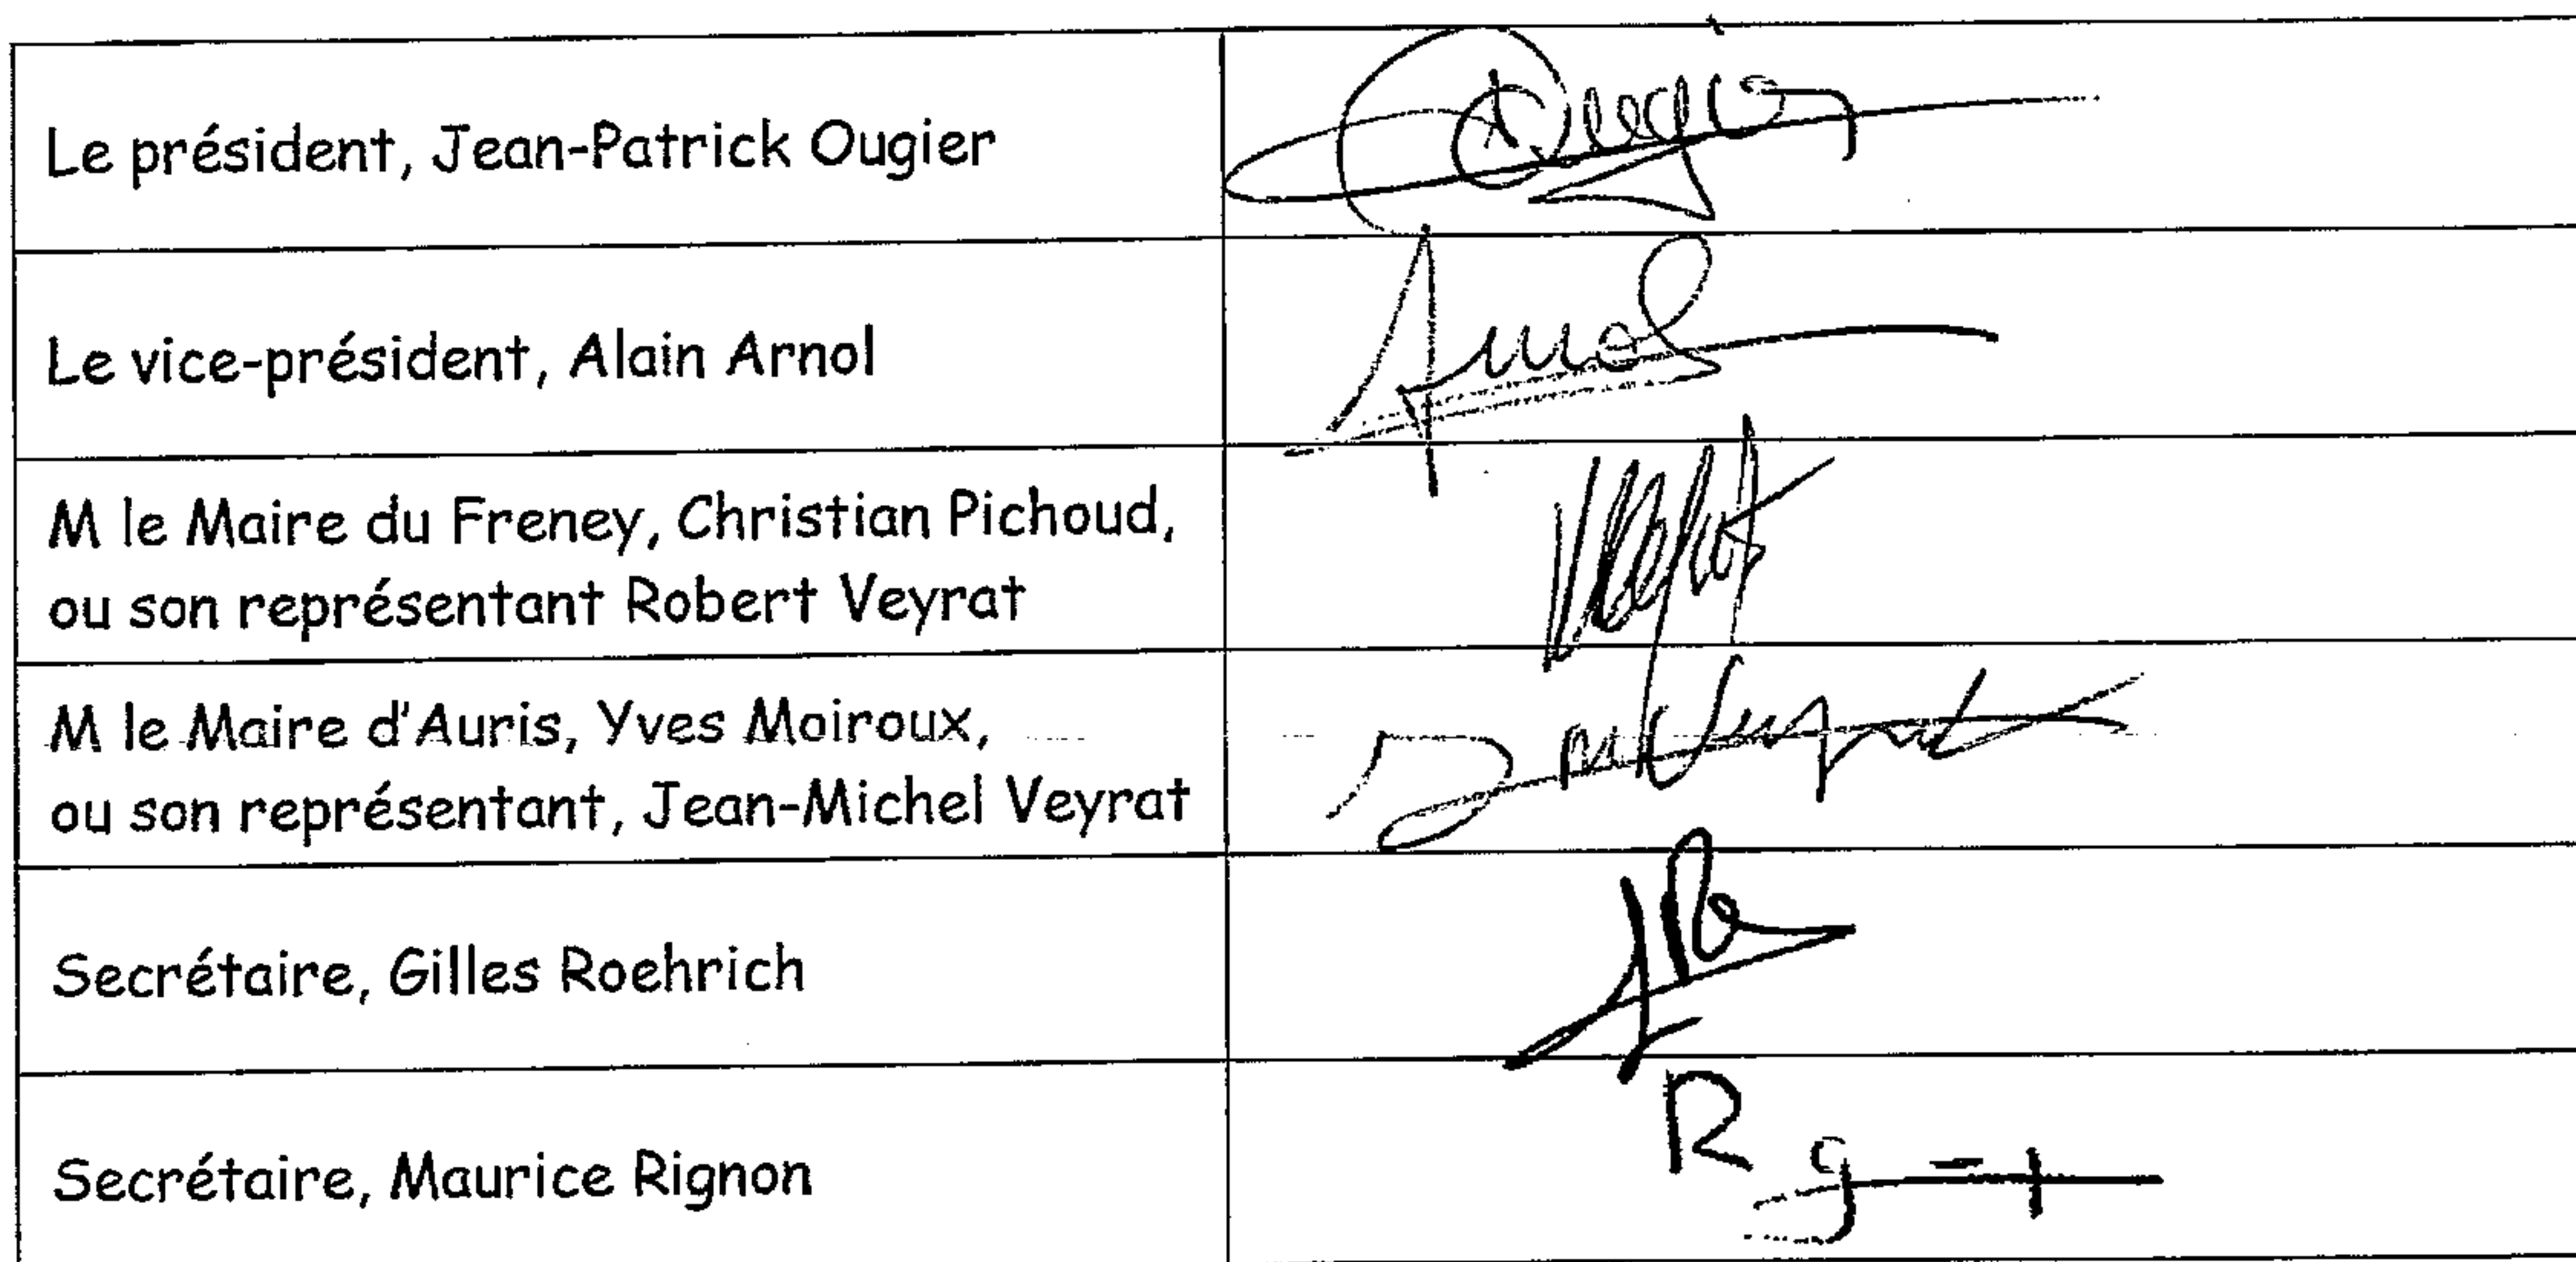 Le président, Jean-Patrick Ougier
Le vice-président, Alain Arnol
Arnol
M le Maire du Freney, Christian Pichoud,
ou son représentant Robert Veyrat
M le Maire d'Auris, Yves Moiroux,
ou son représentant, Jean-Michel Veyrat
Secrétaire, Gilles Roehrich
Secrétaire, Maurice Rignon